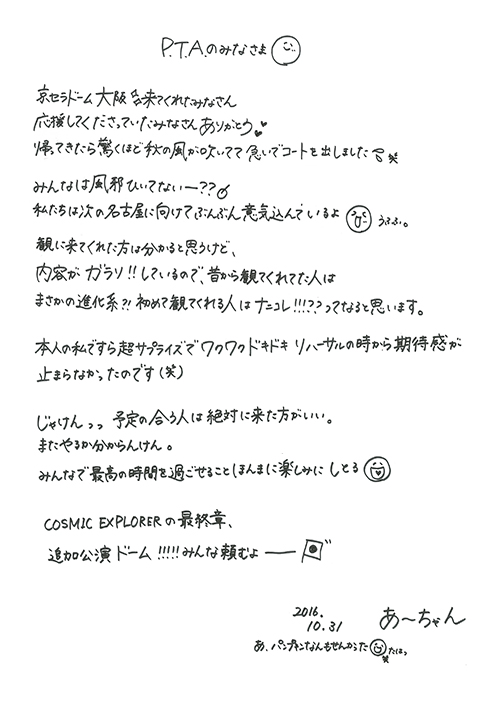 P.T.A.のみなさま
京セラドーム大阪 来てくれたみなさん
応援してくださっていたみなさんありがとう
帰ってきたら驚くほど秋の風が吹いてて急いでコートを出しました 笑
みんなは風邪ひいてないー??
私たちは次の名古屋に向けてぶんぶん意気込んでいるよ うふふ。
観に来てくれた方は分かると思うけど、
内容がガラリ!!しているので、昔から観てくれてた人は
まさかの進化系?! 初めて観てくれる人はナニコレ!!!??ってなると思います。
本人の私ですら超サプライズでワクワクドキドキ リハーサルの時から期待感が
止まらなかったのです(笑)
じゃけんっっ 予定の合う人は絶対に来た方がいい。
またやるか分からんけん。
みんなで最高の時間を過ごせることほんまに楽しみにしとる
COSMIC EXPLORERの最終章、
追加公演ドーム!!!!!みんな頼むよ――
2016.
10.31
あ〜ちゃん
あ、パンプキンなんもせんかった 笑 たはっ